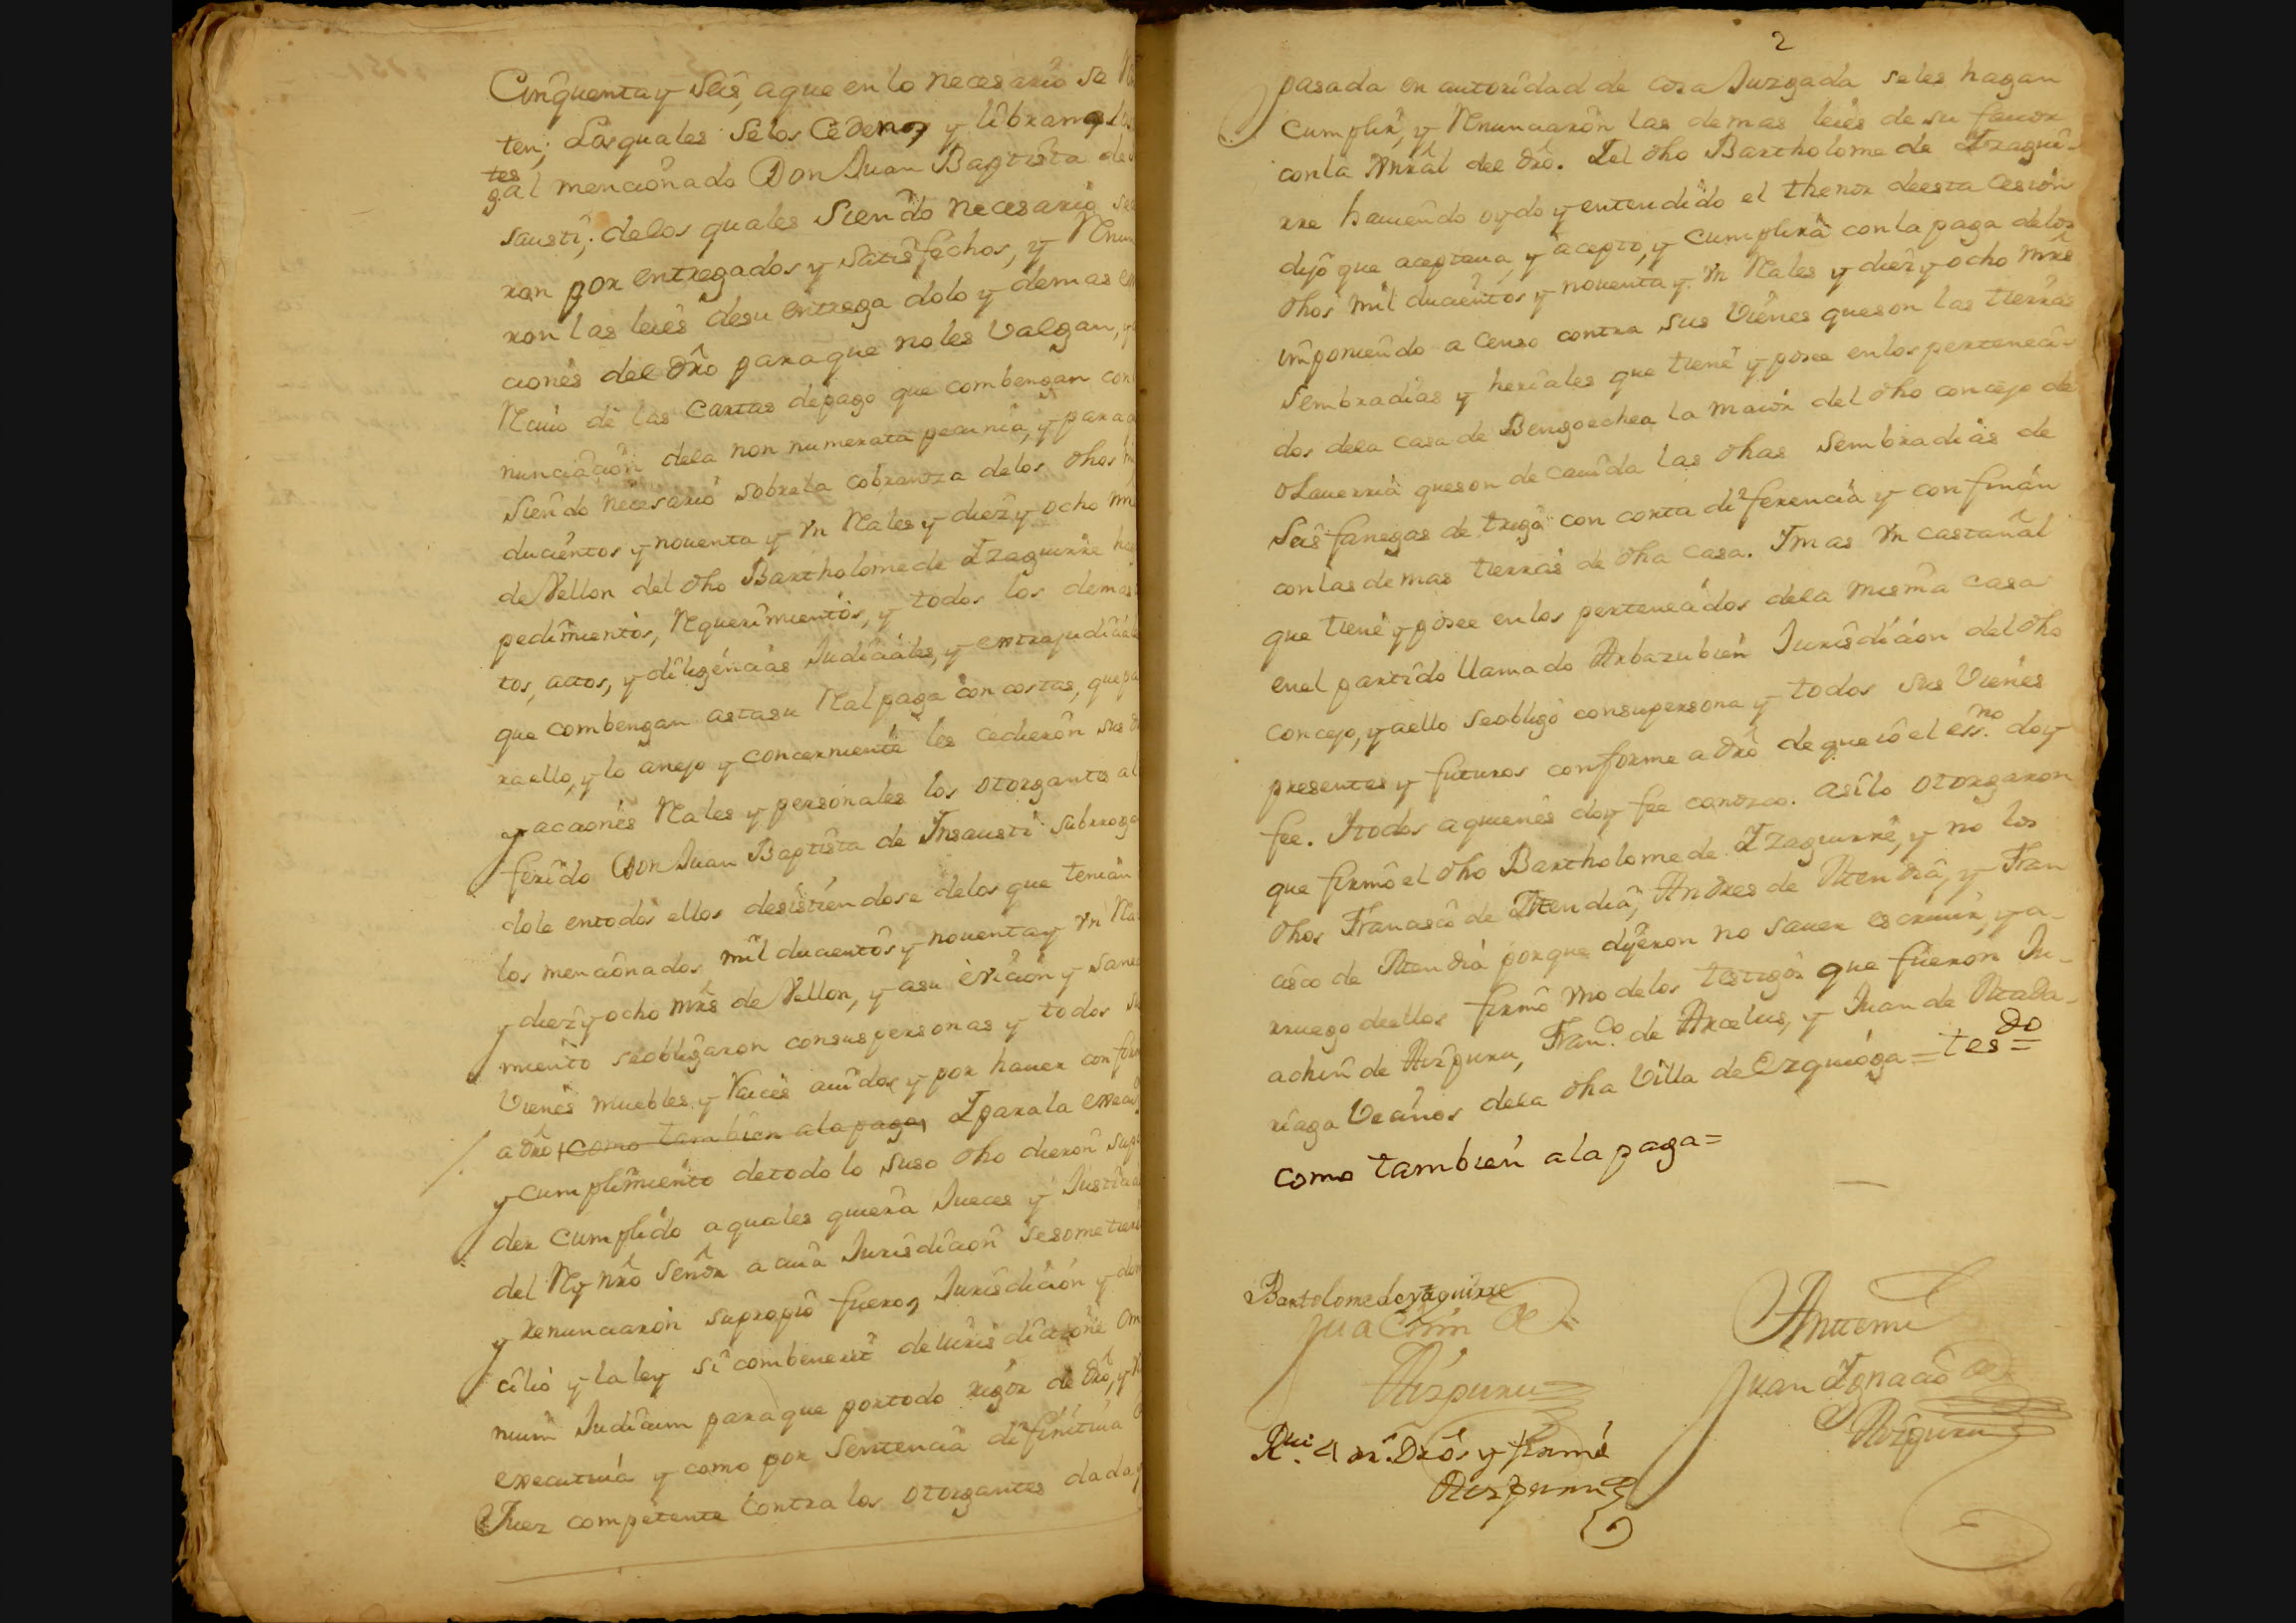 Cinquenta y Seis, aque en lo necesario se
ten; Lasquales Selos Cedenos y libranos
tes
gal mencionado Don Juan Baptista de
sausti; delos quales Siendo necesario se
ron por entregados y Satisfechos, y Renun
ron las leies desu entrega dolo y demas
ciones del dro paraque noles Valgan, y
Reciuo de las Cartas depago que combengan con
nunciacion dela non numerata pecunia, y para
Siendo necesario sobrela cobrantza delos dhos
ducientos y nouenta y Vn Rales y diez y ocho
de Vellon del dho Bartholome de Yzaguirre
pedimientos, Requerimientos, y todos los demas
tos, auttos, y diligencias Judiciales, y extrajudiciale
que combengan astasu Ral paga con costas, quepa
raello, y lo anejo y concerniente les cedieron sus
y acciones Rales y personales los otorgantes al
ferido Don Juan Baptista de Ynsausti subrroga
dole entodos ellos desistiendose delos que tenian
los mencionados mil ducientos y nouentay Vn
y diez y ocho mrs de Vellon, y asu eVicion y sanea
miento seobligaron consuspersonas y todos
Vienes muebles y Raices auidos y por hauer confor
a dro como tambien ala paga Y para la execu
y cumplimiento detodo lo suso dho dieron su po
der cumplido a quales quiera Jueces y Justicia
del Rey nro Señor a cuia Jurisdicion sesometier
y renunciaron supropio fuero, Jurisdicion y do
cilio y la ley si combenerit de Jurisdictione om
nium Judicum paraque portodo rigor de dro, y
executiua y como por Sentencia difinitiua
Juez competente contra los otorgantes dada,
2
pasada en autoridad de cosa Juzgada seles hagan
cumplir, y Renunciaron las demas leies de su fauor
conla Genral del dro. Y el dho Bartholome de Yzagui-
rre hauiendo oydo y entendido el thenor deesta cesion
dijo que aceptaua, y acepto, y cumplira con la paga delos
dhos mil ducientos y nouenta y Vn Rales y diez y ocho mrs
imponiendo a Censo contra sus Vienes queson las tierras
Sembradias y heriales que tiene y posee enlos perteneci-
dos dela casa de Bengoechea la maior del dho concejo de
Olauerria queson de cauida las dhas Sembradias de
Seis fanegas de trigo con corta diferencia y confinan
conlas demas tierras de dha casa. Y mas Vn castañal
que tiene y posee en los pertenecidos dela misma casa
enel partido llamado Arbazubien Jurisdicion del dho
concejo, y aello seobligo consupersona y todos sus Vienes
presentes y futuros conforme a dro de queio el essno. doy
fee. Y todos aquienes doy fee conozco. asilo otorgaron
que firmo el dho Bartholome de Yzaguirre, y no los
dhos Francisco de Atendia, Andres de Atendia, y Fran
cisco de Atendia porque dijeron no sauer escriuir, y a-
rruego deellos firmo vno delos testigos que fueron Ju-
achin de Aizpuru, Franco. de Arcelus, y Juan de Aleba-
riaga Vecinos dela dha Villa de Ezquioga = tesdo =
como tambien ala paga =
Bartolome de yzaguirre
Juachin de
Aizpuru
Anttemi
Juan Ygnacio de
Aizpuru
Rui. 4 rs. Dros y firme
Aizpuru